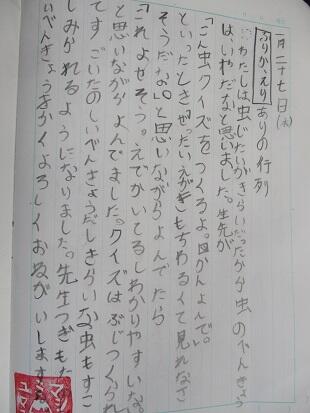 一月二十七日(水)
ふりかえり ありの行列
わたしは虫じたいがきらいだったから虫のべんきょう
は、いやだなと思いました。先生が
「こん虫クイズをつくるよ。図かんよんで。」
といったときぜったいえがきもちわるくて見れなさ
そうだな。と思いながらよんでたら
「これよせそつ。えでかいてるしわかりやすいな。
と思いながらよんでました。クイズはぶじつくられ
てすごいたのしいべんきょうだしきらいな虫もすこ
しみかれるようになりました。先生つぎもたの
いべんきょうをかくよろしくおねがいします